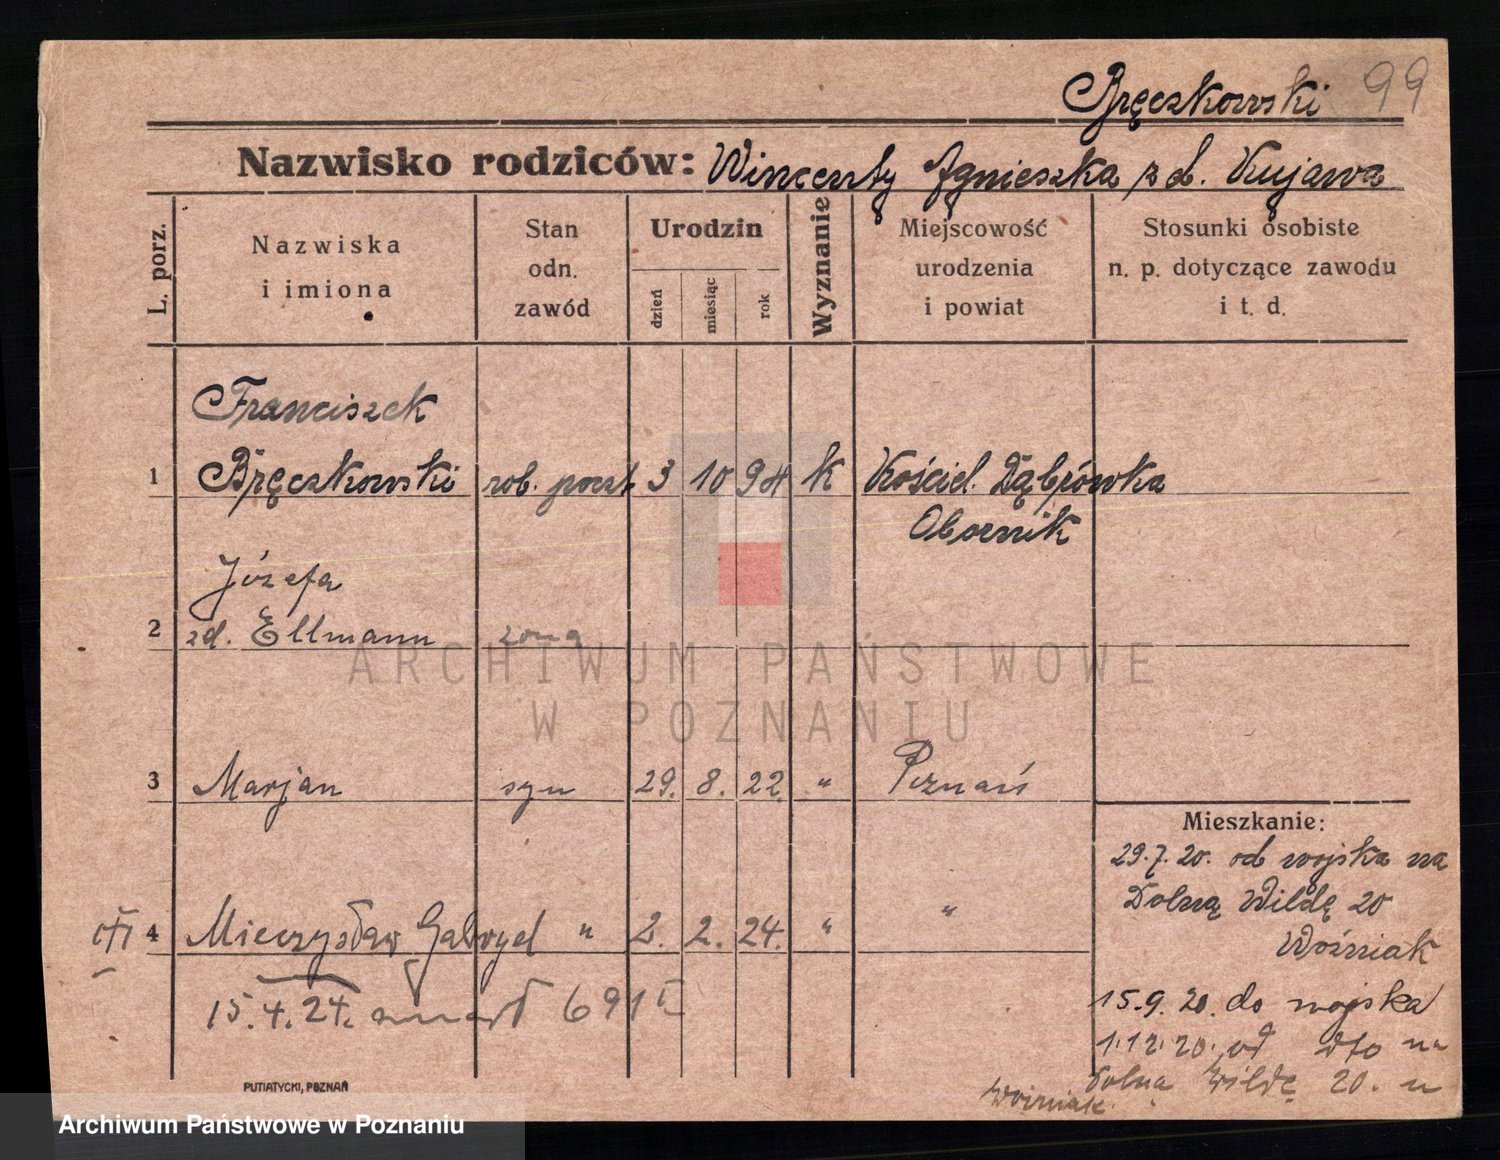 Bręczkowski 99
Nazwisko rodziców: Wincenty Agnieszka zd. Kujawa
L. porz.
Nazwiska
i imiona
Stan
odn.
zawód
Urodzin
dzień
miesiąc
rok
Wyznanie
Miejscowość
urodzenia
i powiat
Stosunki osobiste
n. p. dotyczące zawodu
i t. d.
Franciszek
1 Bręczkowski rob. poczt 3 10 94 k Kościel. Dąbrówka
Obornik
Józefa
2 zd. Ellmann żona
3 Marjan syn 29. 8. 22. " Poznań
Mieszkanie:
29.7.20. od wojska na
Dolną Wildę 20
Woźniak
4 Mieczysław Gabryel " 2. 2. 24. " "
15.4.24. umarł 691
15.9.20. do wojska
1.12.20. od dto na
Dolną Wildę 20. u
Woźniak.
PUTIATYCKI, POZNAŃ
ARCHIWUM PAŃSTWOWE
W POZNANIU
Archiwum Państwowe w Poznaniu